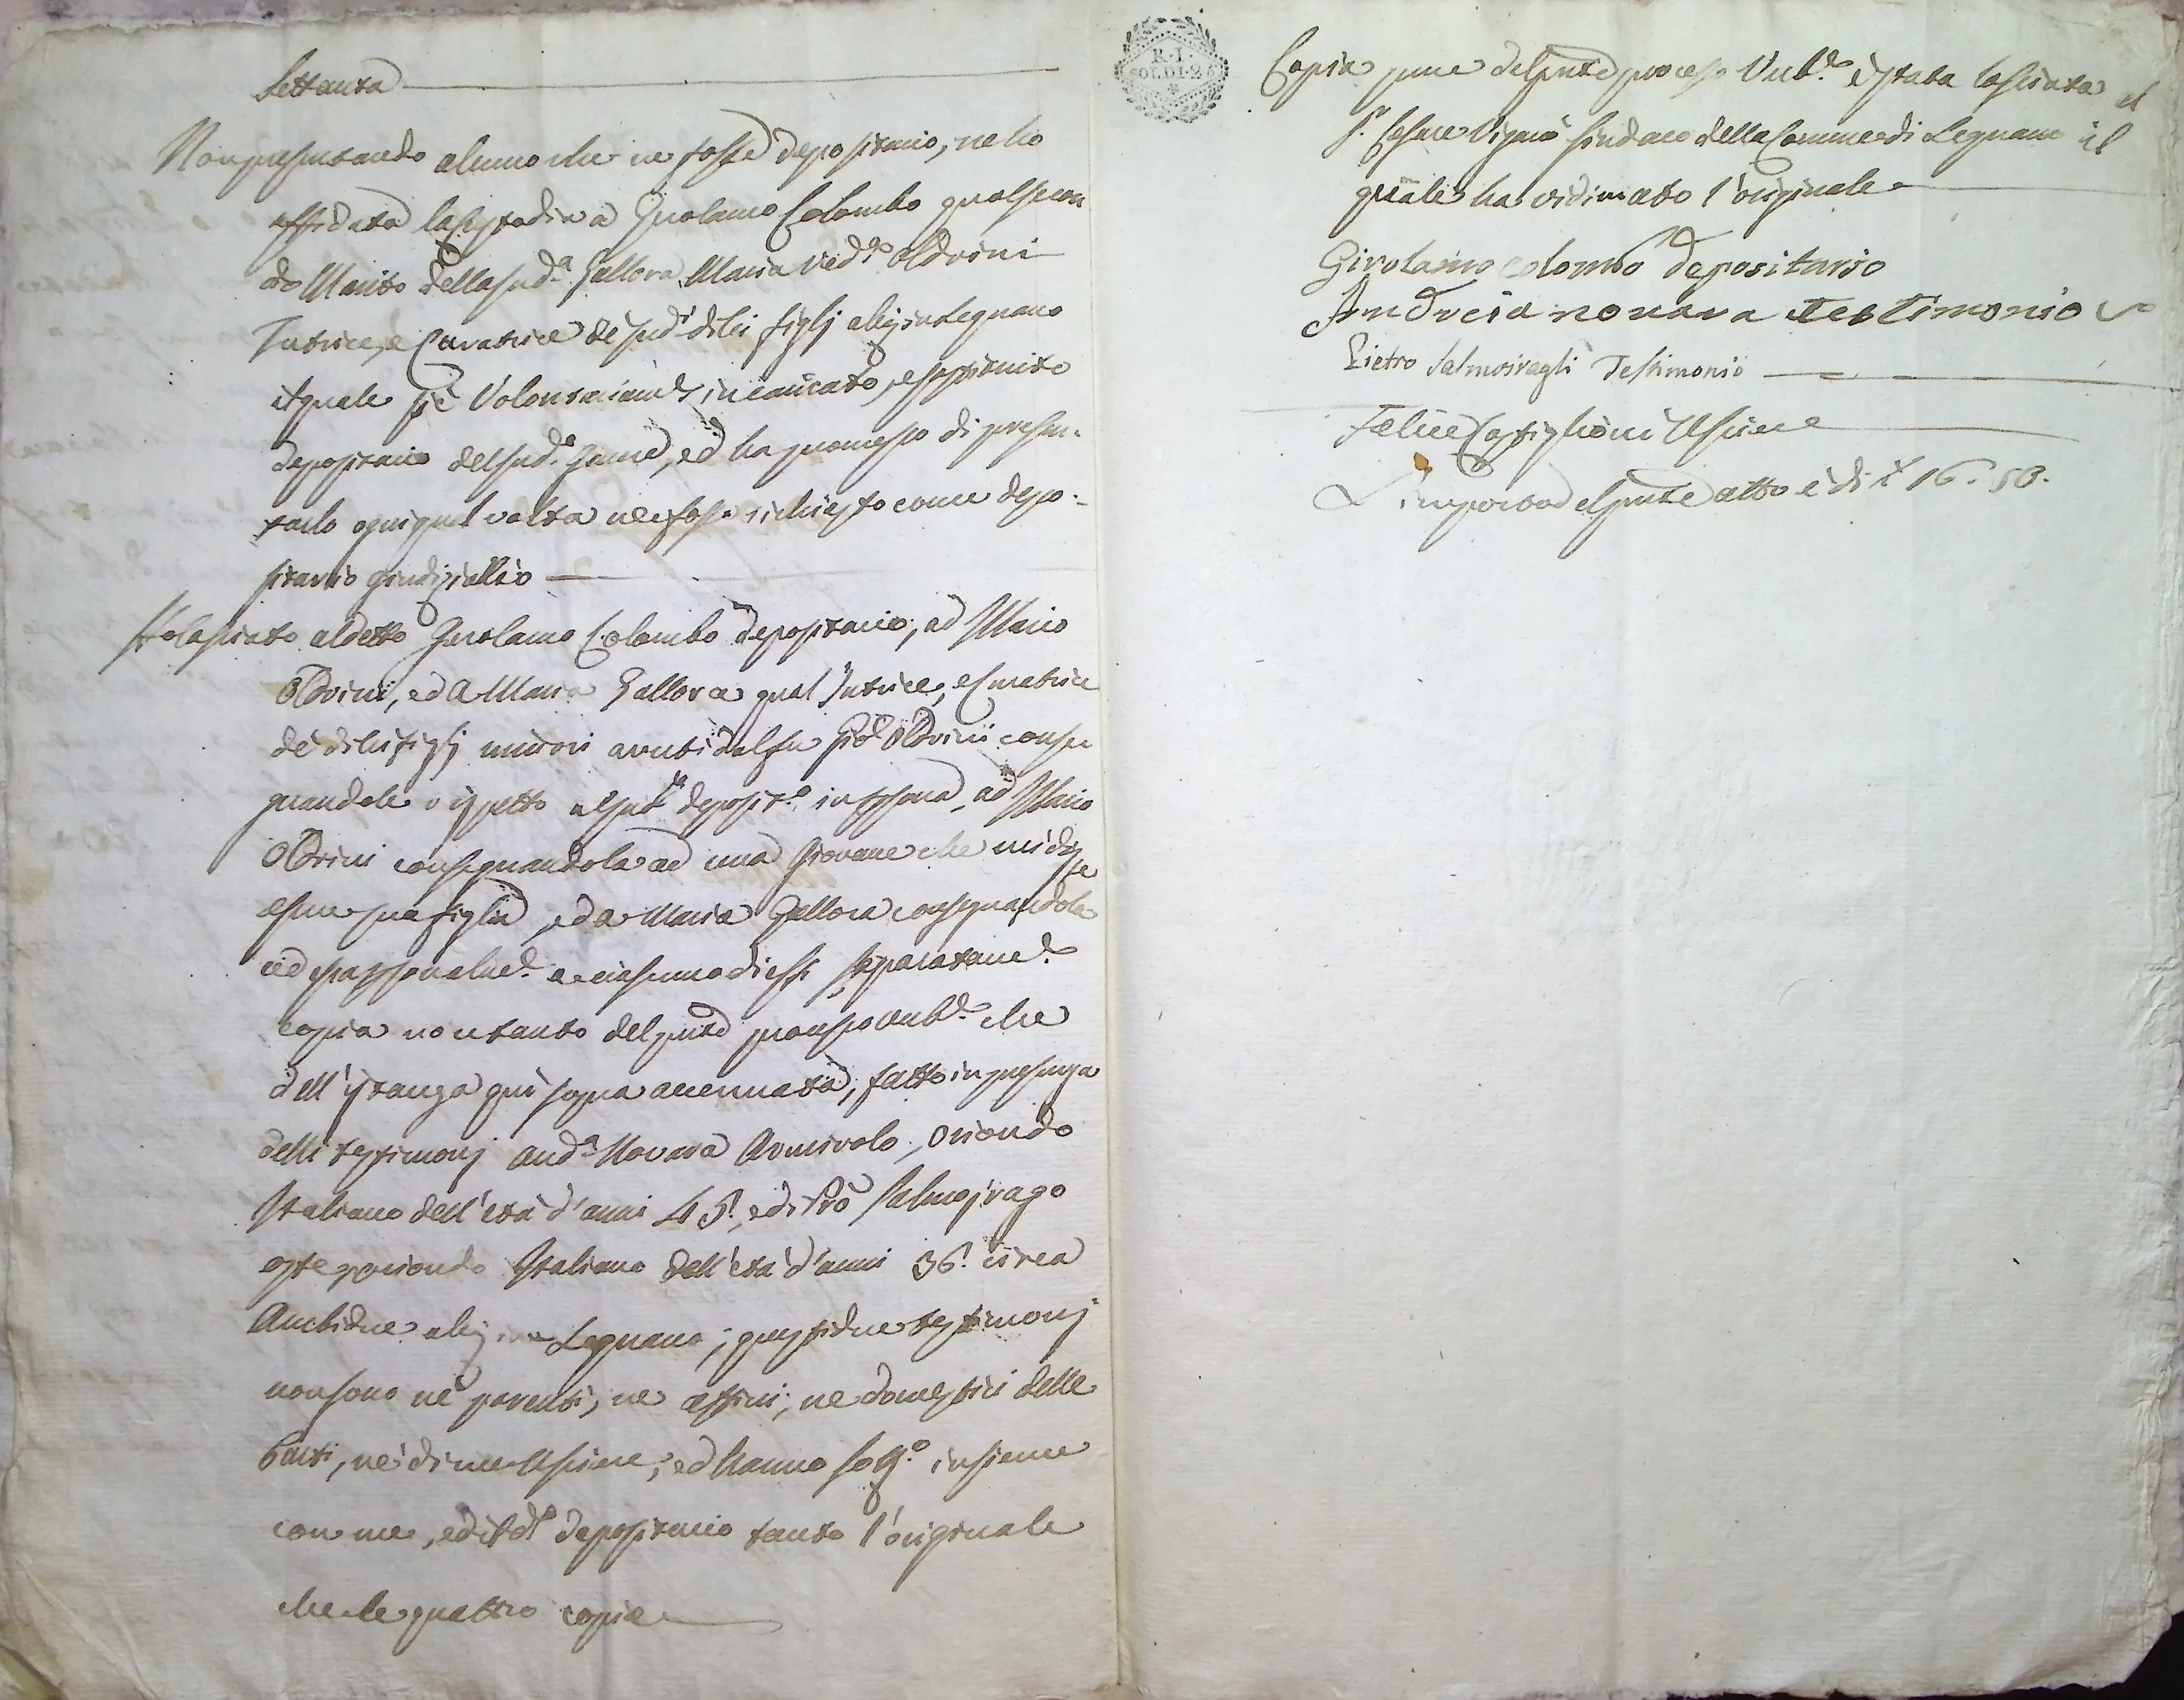 Settanta
Non presentando alcuno che ne fosse depositario, ne ho
affidata la custodia a Girolamo Colombo qual secon
do Marito della sud.a Gallora Maria ved.a Oldrini
Tutrice, e Curatrice de' sud.i di lei figlj abij in Legnano
il quale si è Volontariam.e incaricato, e costituito
depositario del sud.o, ed ha promesso di presen-
tarlo ogni qual volta ne fosse richiesto come depo-
sitario giudiziallio
Ho lasciato al detto Girolamo Colombo depositario, ad Mario
Oldrini, ed a Maria Gallora qual Tutrice, e Curatrice
de' di lei figlj minori avuti dal fu Oldrini conse
gnandole rispetto al deposit.o in persona, ad Mario
Oldrini consegnandola ad una Giovane che mi disse
essere sua figlia, ed a Maria Gallora consegnandola
ad essa a ciascuno di essi separatam.e
copia non tanto del pnte processo Verb.e che
dell'istanza qui sopra accennata, fatto in presenza
delli testimonj And.a Novara Armirolo, oriondo
Italiano dell'età d'anni 45., e di Pro Salmojrago
oste oriondo Italiano dell'età d'anni 36. circa
Ambidue abij in Legnano; questi due testimonj
non sono nè parenti, ne affini, ne domestici delle
Parti, nè di me Usciere, ed hanno sott.o insieme
con me, ed il d.o depositario tanto l'originale
che le quattro copie
R. I.
SOLDI 25
Copia pure del pnte processo Verb.e è stata lasciata al
S.r Cesare Vignò Sindaco della Comune di Legnano il
quale ha vidimato l'originale
Girolamo colombo depositario
Andreia novara testimonio
Pietro Salmoiragli Testimonio
Felice Castiglioni Usciere
L'importo del pnte atto è di £ 16. 50.